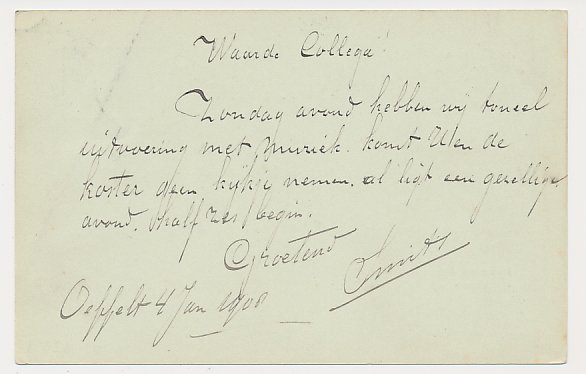 Waarde Collega!
Zondag avond hebben wij toneel
uitvoering met muziek. komt U en de
koster deen kijkje nemen. al ligt een gezellige
avond. half zes begin.
Groetend
Smits
Oeffelt 4 Jan 1908